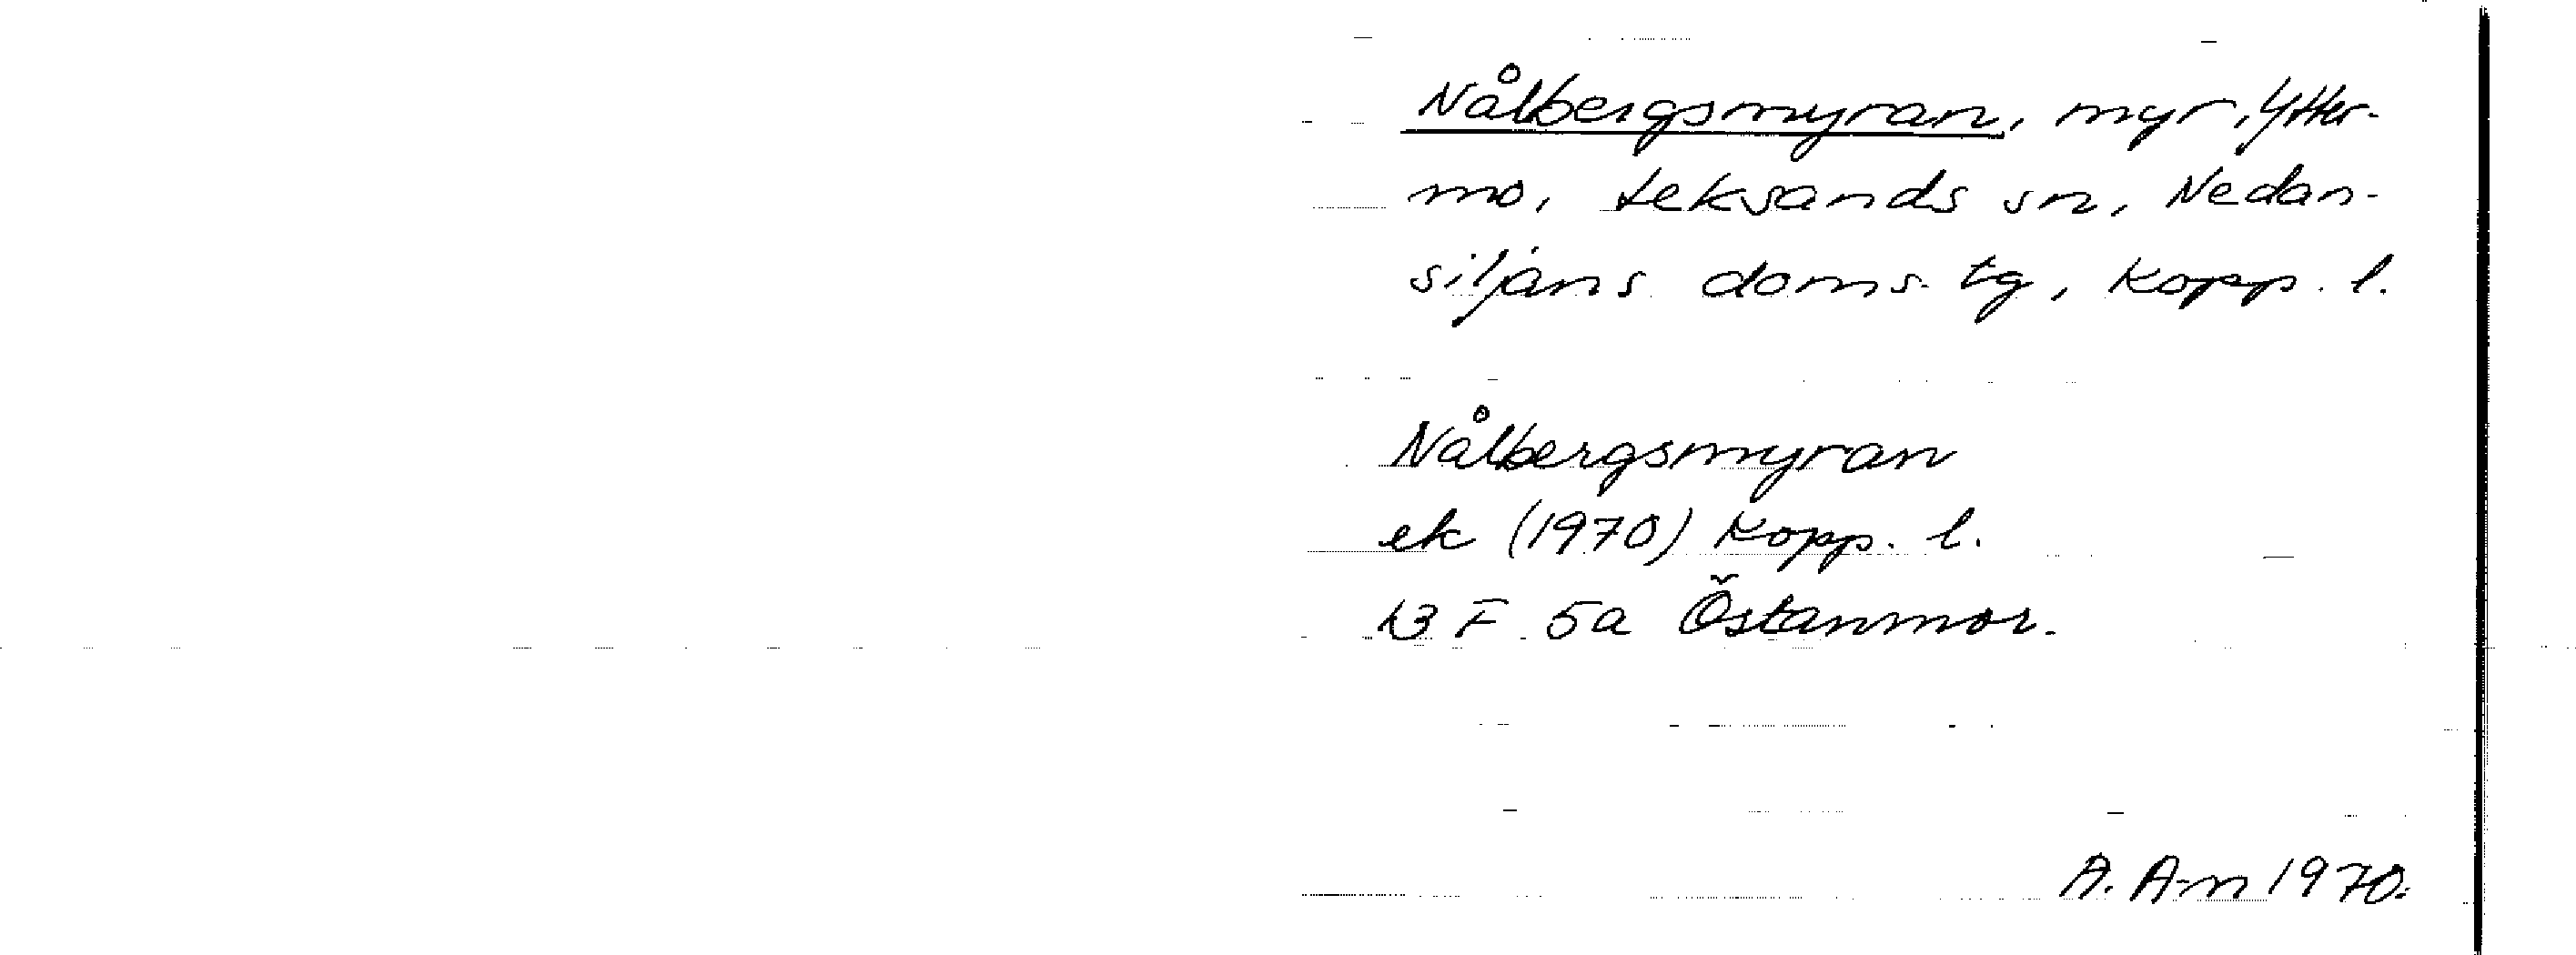 Nålbergsmyran, myr, Ytter-
mo, Leksands sn, Nedan-
siljans doms. tg, Kopp. l.
Nålbergsmyran
ek (1970) Kopp. l.
13 F 5a Östanmor.
A. A-n 1970.